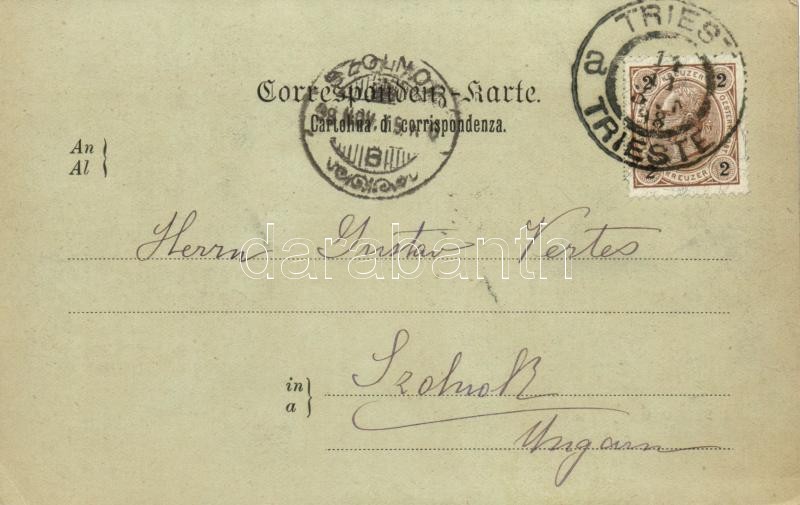 TRIESTE
a
TRIESTE
2 KREUZER 2
2 KREUZER 2
SZOLNOK
98 NOV.
B
Correspondenz-Karte.
Cartolina di corrispondenza.
An
Al
Herrn Gustav Vertes
darabanth
in
a
Szolnok
Ungarn